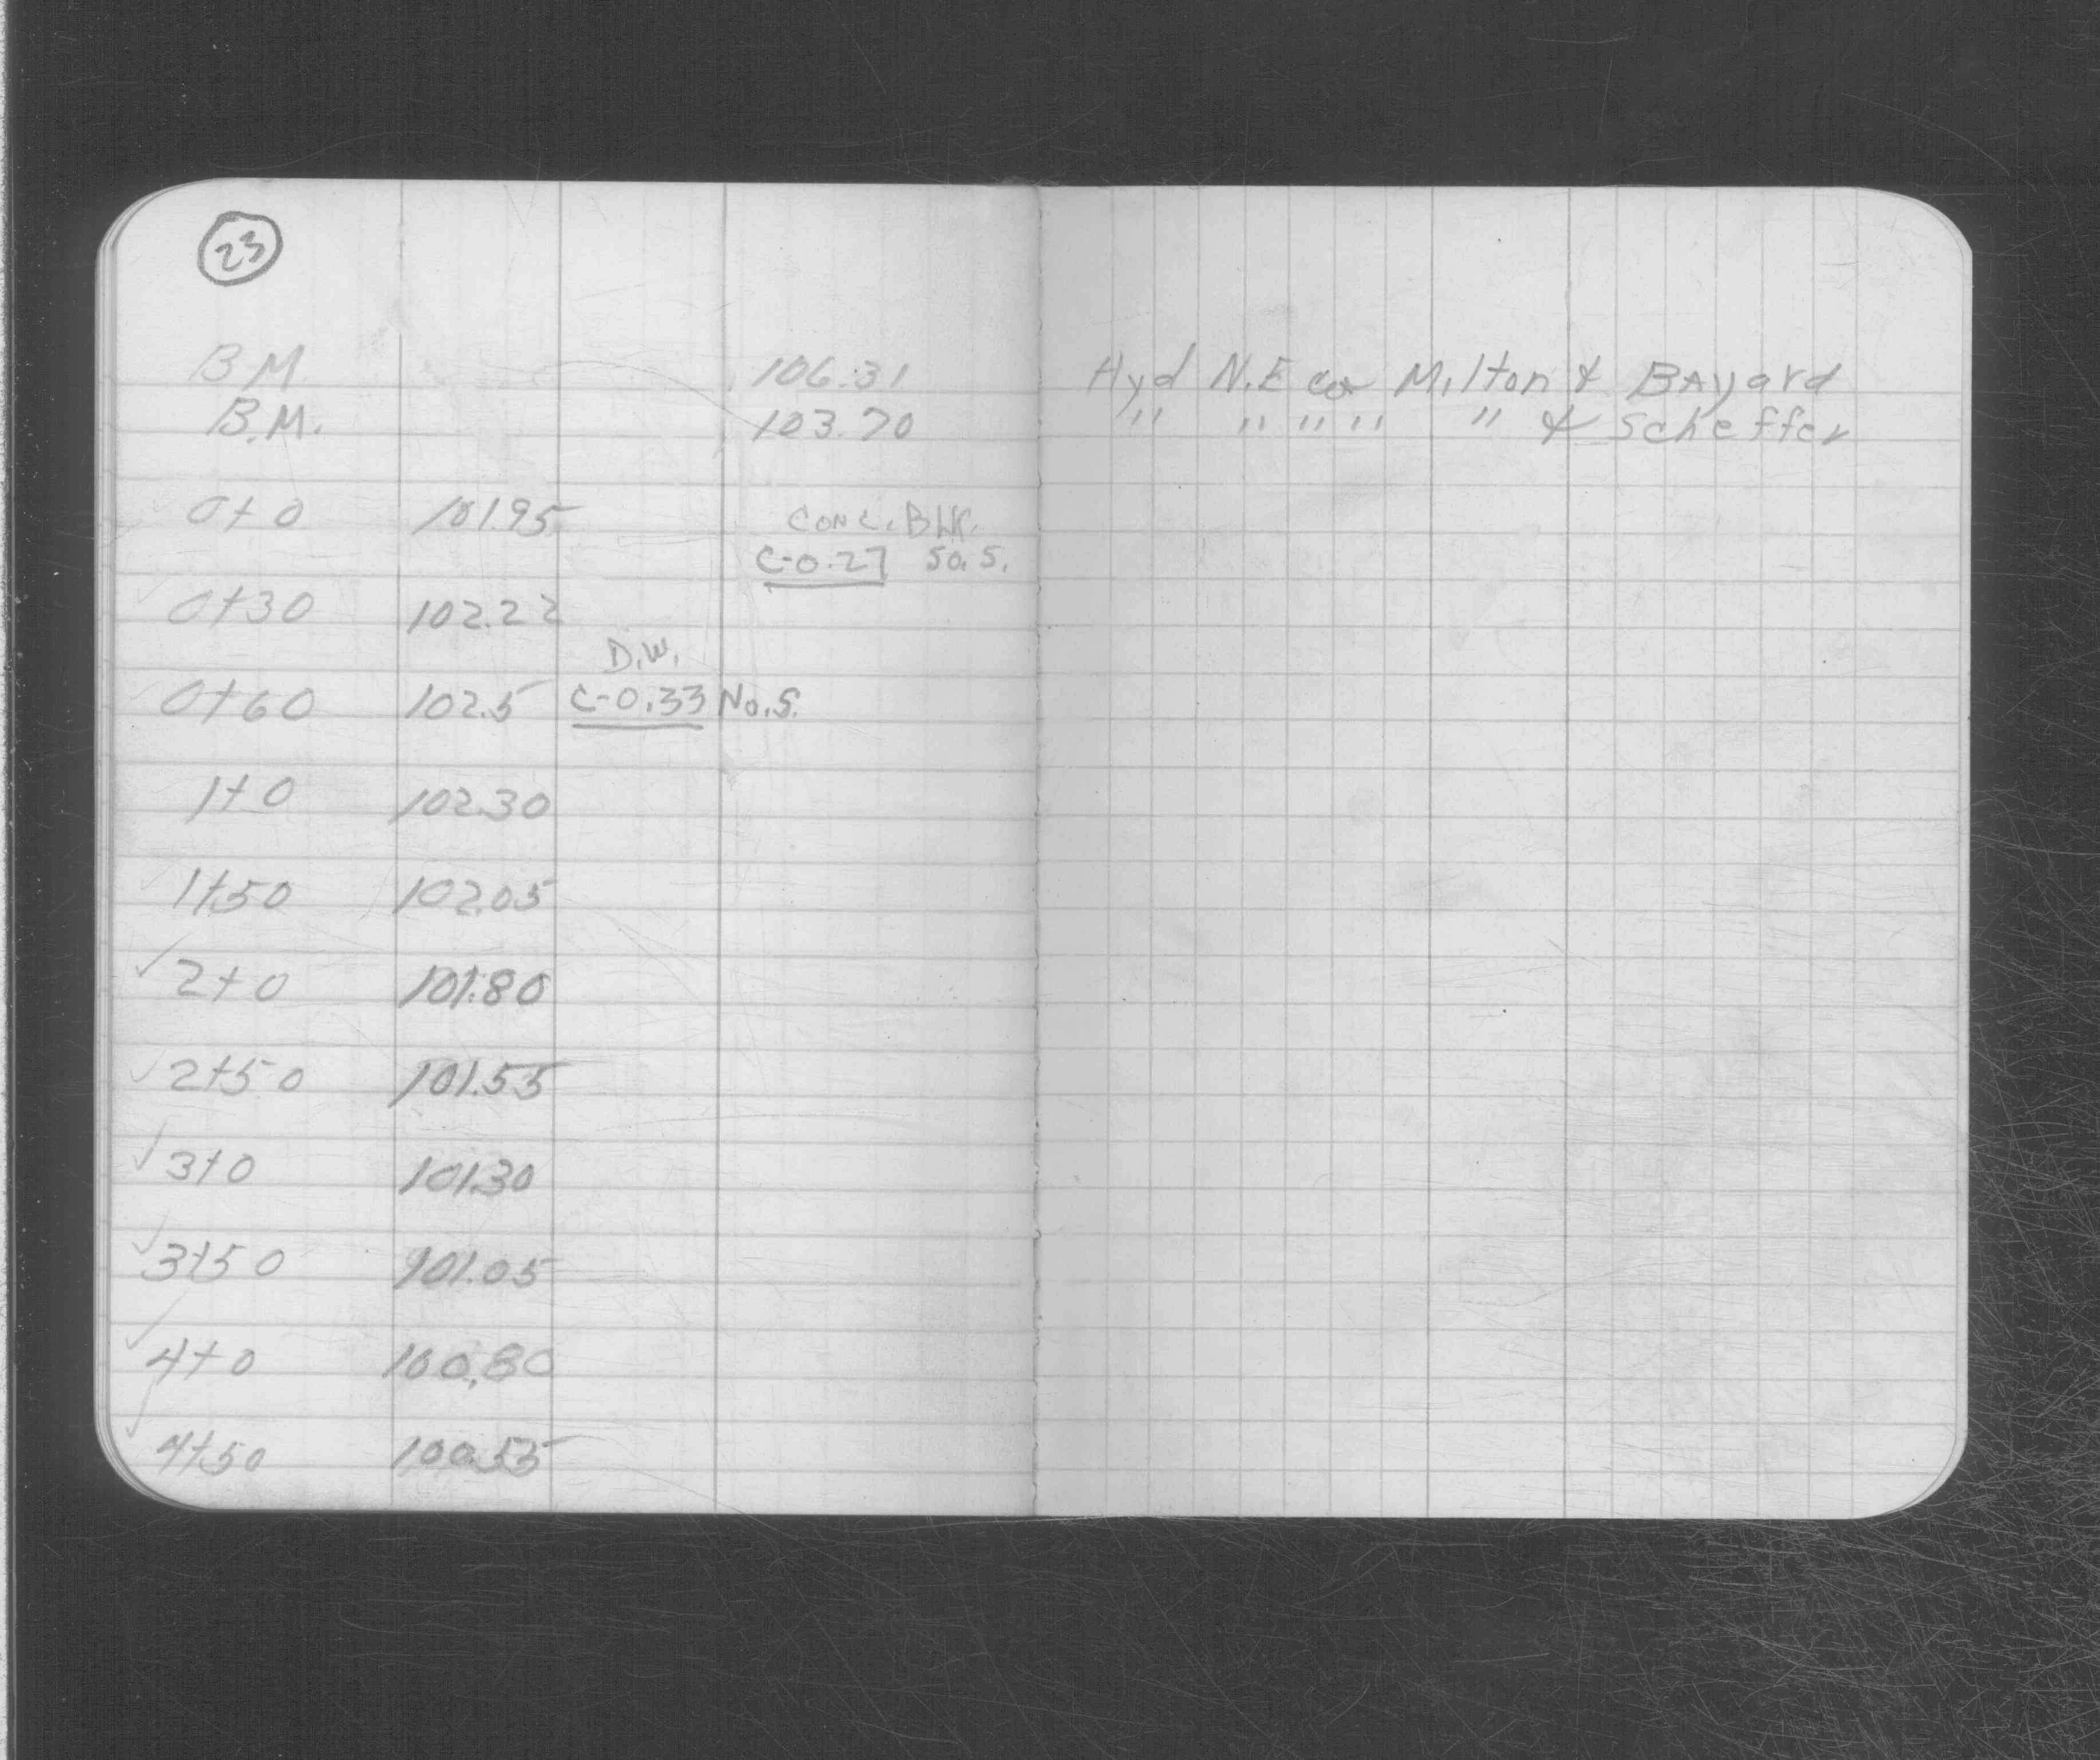 23
B.M. 106.31 Hyd N.E cor Milton & Bayard
B.M. 103.70 " " " " " & Scheffer
0+0 101.95 Conc. Blk.
C-0.27 So. S.
0+30 102.22
D.W.
0+60 102.5 C-0.33 No. S.
1+0 102.30
1+50 102.05
✓ 2+0 101.80
✓ 2+50 101.55
✓ 3+0 101.30
✓ 3+50 101.05
✓ 4+0 100.80
✓ 4+50 100.55